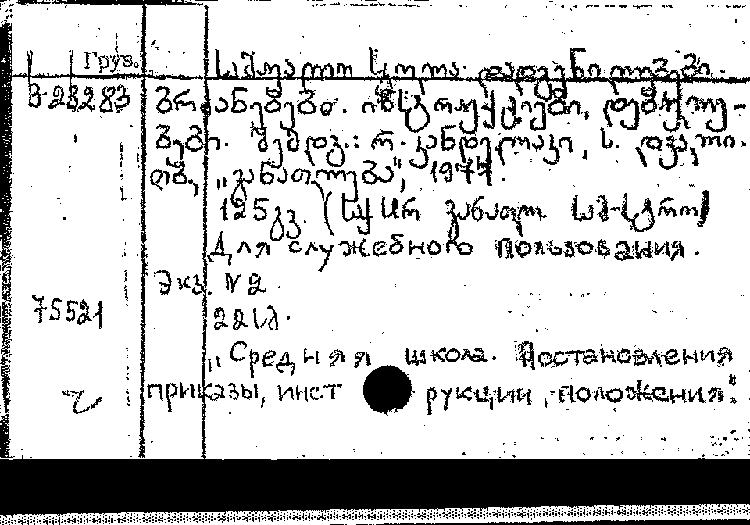 Груз.
საშუალო სკოლა. დადგენილებები.
3-23283 ბრძანებები. ინსტრუქციები, დებულე-
ბები. შემდგ.: რ. კანდელაკი, ს. დვალი.
თბ., „განათლება", 1977.
125 გვ. (საქ. სსრ განათლ. სამ-სტრო)
Для служебного пользования.
Экз. № 2
75521
„Средняя школа. Постановления
приказы, инструкции, положения".